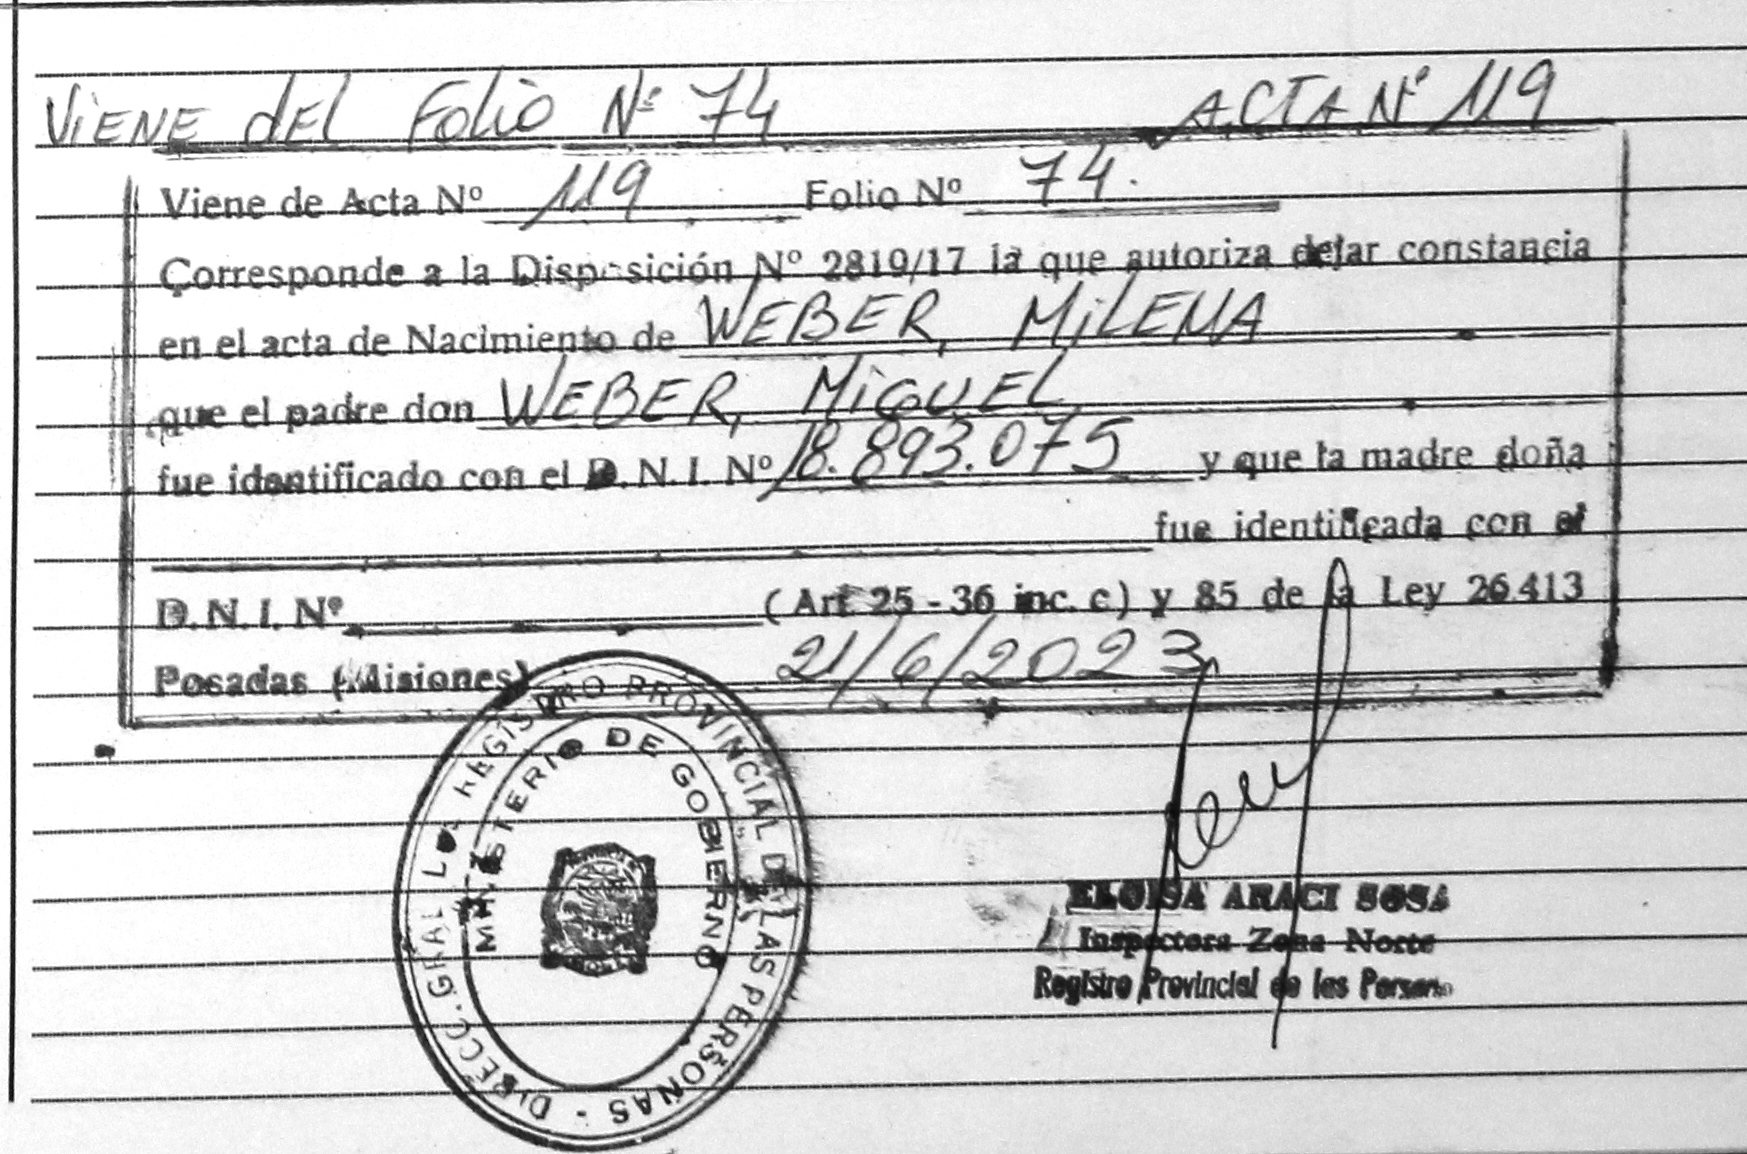 ViENE dEL Folio Nº 74 ACTA Nº 119
Viene de Acta Nº 119 Folio Nº 74.
Corresponde a la Disposición Nº 2819/17 la que autoriza dejar constancia
en el acta de Nacimiento de WEBER, MiLENA
que el padre don WEBER, MiGUEL
fue identificado con el D.N.I. Nº 18.893.075 y que la madre doña
fue identificada con el
D.N.I. Nº (Art 25 - 36 inc. c) y 85 de la Ley 26.413
Posadas (Misiones) 21/6/2023
DIRECC. GRAL DEL REGISTRO PROVINCIAL DE LAS PERSONAS -
MINISTERIO DE GOBIERNO
ELOISA ARACI SOSA
Inspectora Zona Norte
Registro Provincial de las Personas